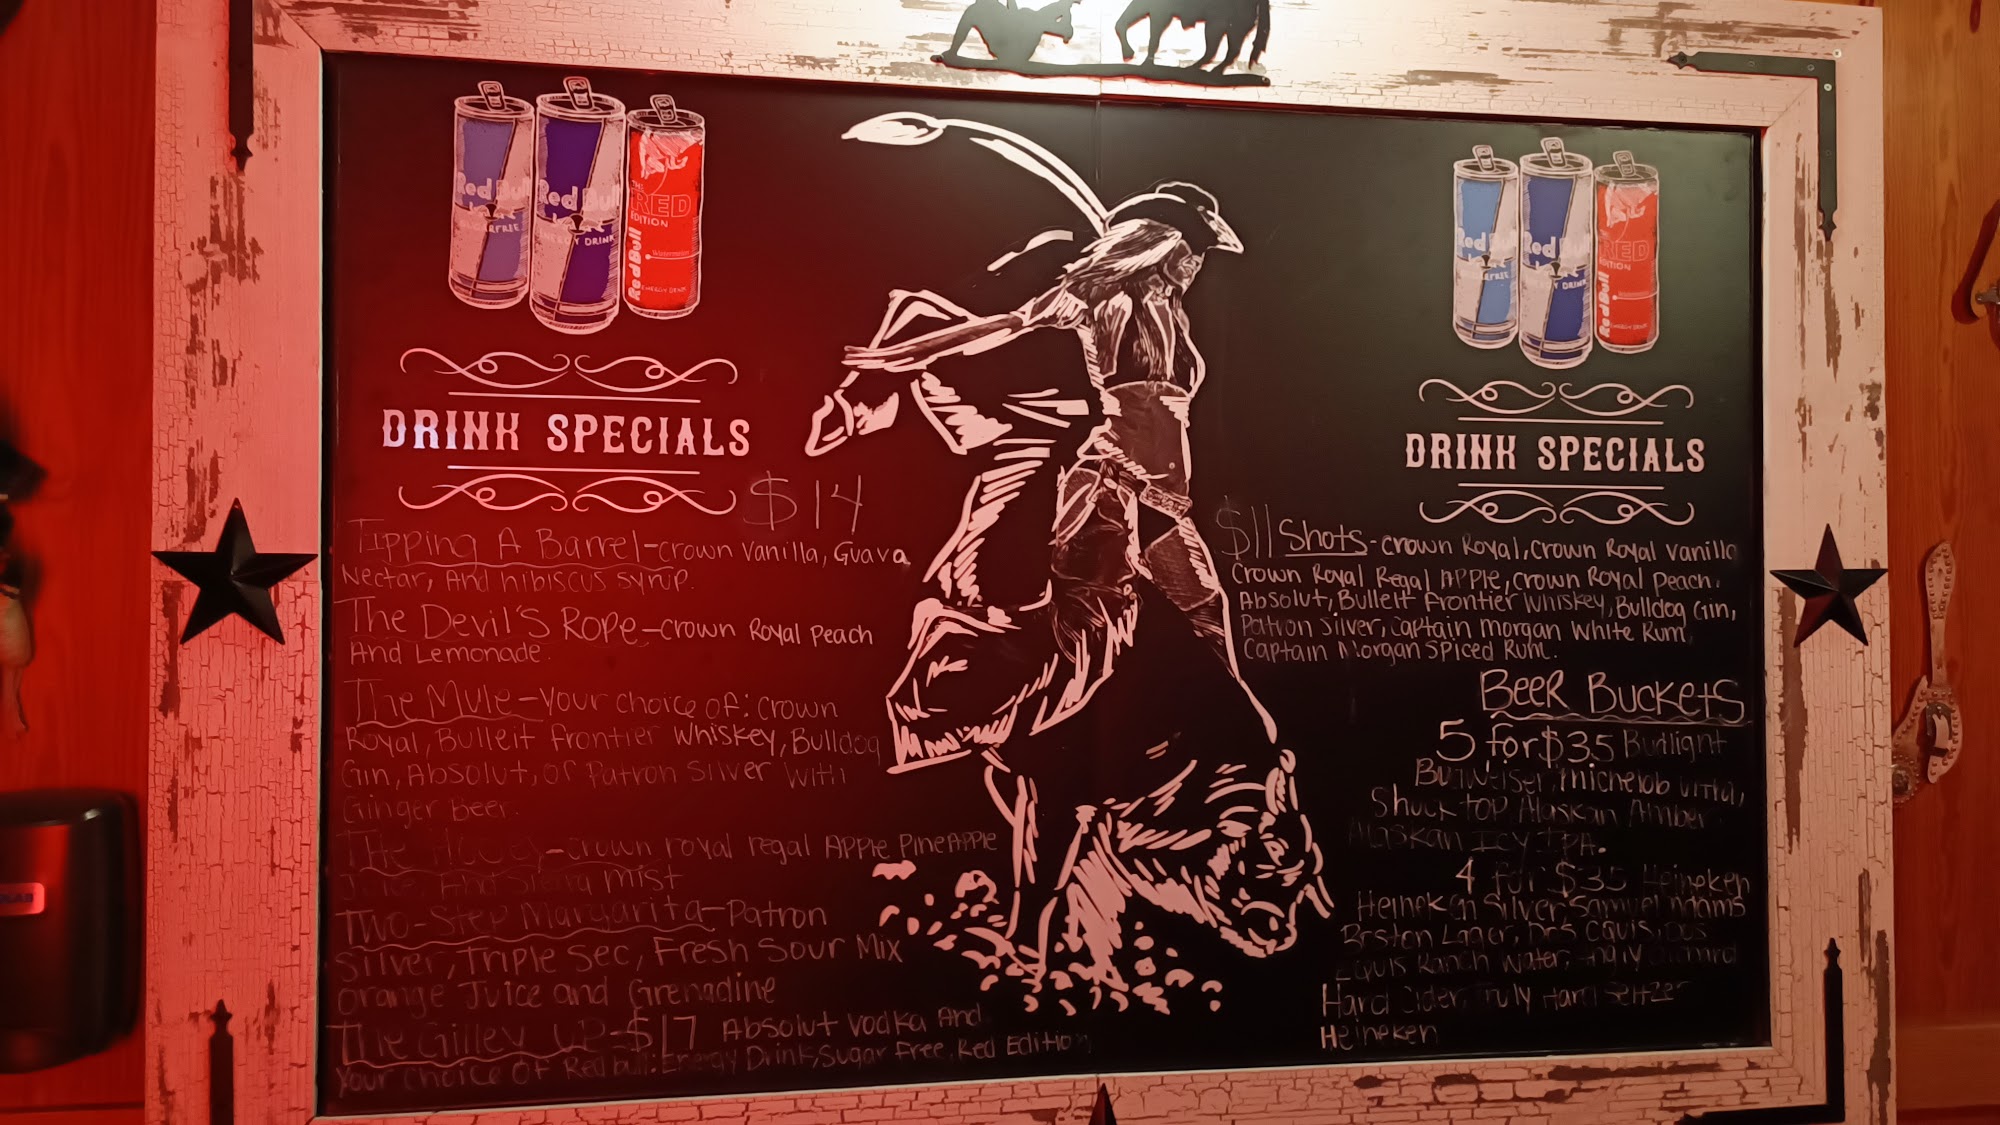 Red Bull
SUGARFREE
Red Bull
ENERGY DRINK
THE
RED
EDITION
Red Bull
Watermelon
ENERGY DRINK
DRINK SPECIALS
$14
Tipping A Barrel-crown vanilla, Guava
Nectar, And hibiscus syrup.
The Devil's Rope-crown Royal Peach
And Lemonade.
The Mule-your choice of: crown
Royal, Bulleit frontier Whiskey, Bulldog
Gin, Absolut, or Patron Silver With
Ginger Beer.
The -crown royal regal Apple, PineApple
Juice, And Sierra mist
Two-Step Margarita-Patron
Silver, Triple Sec, Fresh Sour Mix
orange Juice and Grenadine
The Gilley up-$17 Absolut vodka And
your choice of Redbull: Energy Drink, Sugar free, Red Edition
Red Bull
Red Bull
ENERGY DRINK
RED
EDITION
Red Bull
ENERGY DRINK
DRINK SPECIALS
$11 Shots-crown Royal, crown Royal vanilla
Crown Royal Regal Apple, crown Royal Peach,
Absolut, Bulleit frontier Whiskey, Bulldog Gin,
Patron Silver, captain morgan White Rum
Captain Morgan Spiced Rum.
Beer Buckets
5 for $35 Budlight
Budweiser, michelob ultra,
Shock top Alaskan Amber
Alaskan Icy IPA.
4 for $35 Heineken
Heineken Silver, Samuel Adams
Boston Lager, Dos Equis, Dos
Equis Ranch Water, Angry Orchard
Hard Cider, Truly Hard Seltzer
Heineken